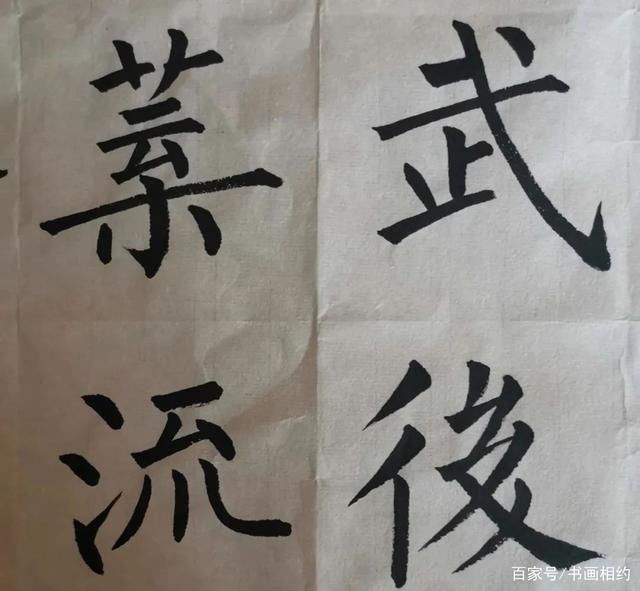 武後
葉流
百家号/书画相约